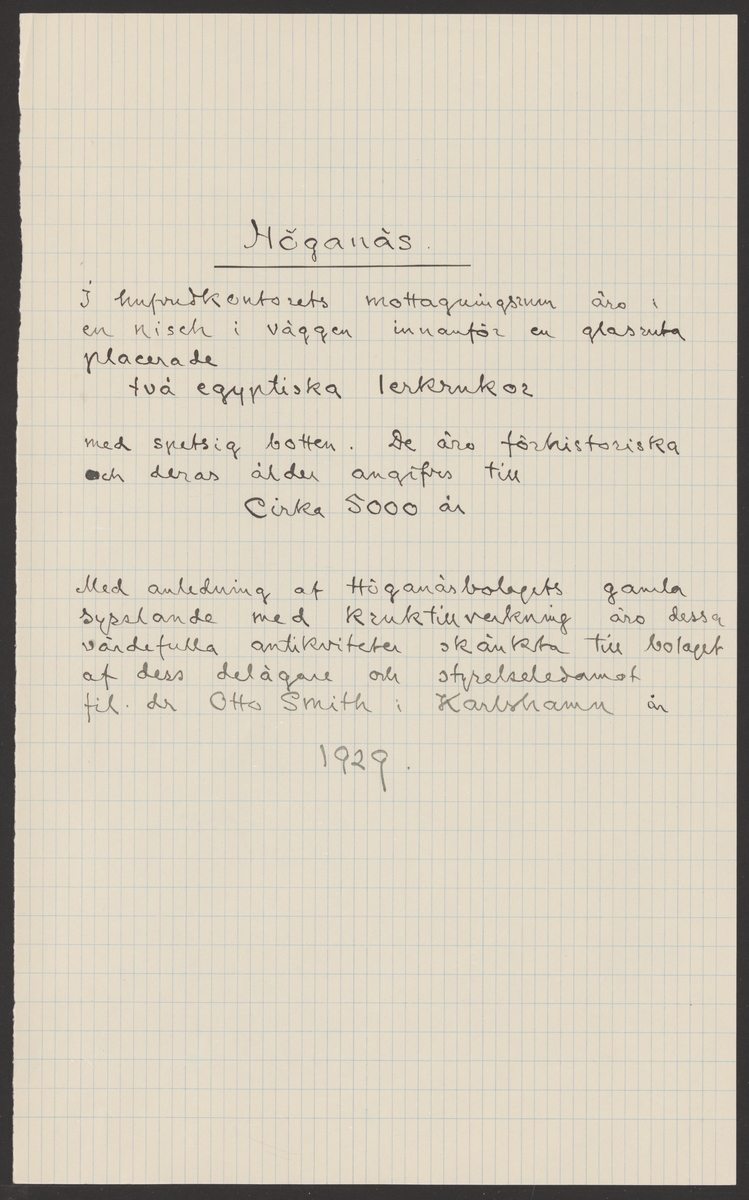 Höganäs.
I hufvudkontorets mottagningsrum äro i
en nisch i väggen innanför en glasruta
placerade
två egyptiska lerkrukor
med spetsig botten. De äro förhistoriska
och deras ålder angifves till
Cirka 5000 år
Med anledning af Höganäsbolagets gamla
sysslande med kruktillverkning äro dessa
värdefulla antikviteter skänkta till bolaget
af dess delägare och styrelseledamot
fil. dr Otto Smith i Karlshamn år
1929.